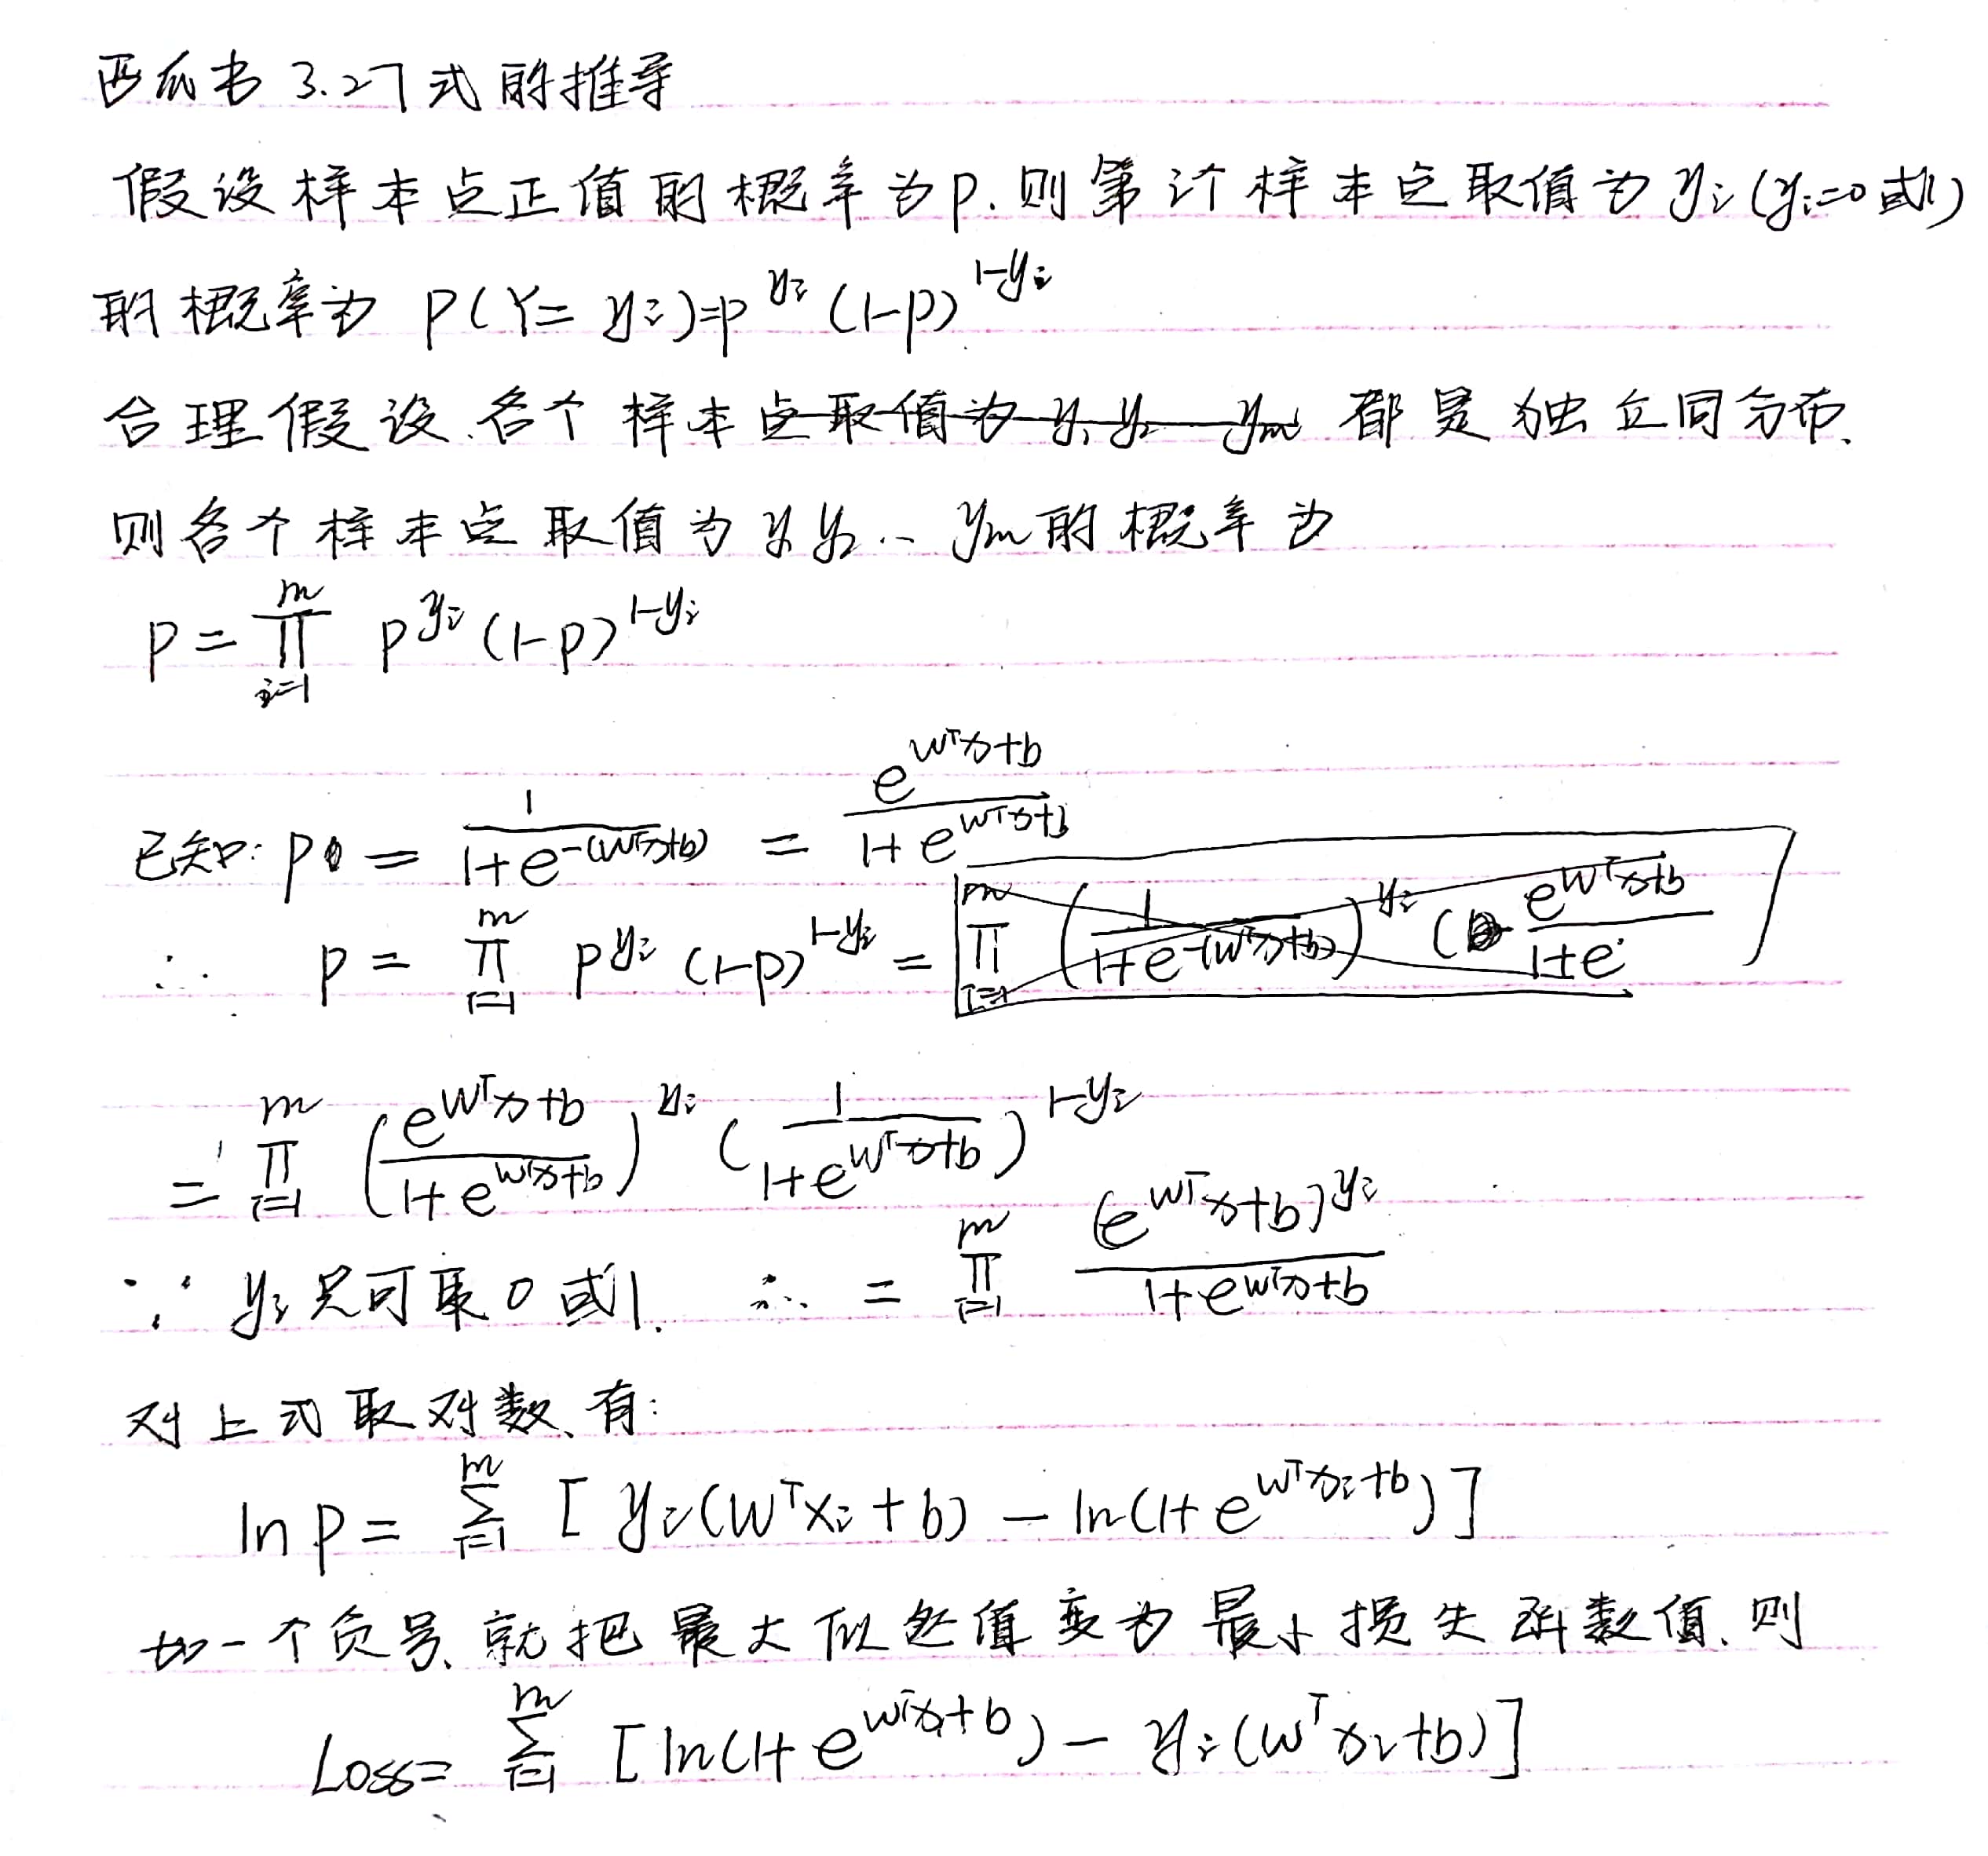 西瓜书 3.27式的推导
假设样本点正值的概率为p.则第i个样本点取值为yi(yi=0或1)
的概率为 P(Y=yi)=p^yi (1-p)^1-yi
合理假设、各个样本点取值为y1 y2 — ym 都是独立同分布、
则各个样本点取值为y1 y2 … ym的概率为
P = ∏_{i=1}^{m} p^{yi} (1-p)^{1-yi}
已知: p = 1/(1+e^{-(wᵀx+b)}) = e^{wᵀx+b}/(1+e^{wᵀx+b})
∴ P = ∏_{i=1}^{m} p^{yi} (1-p)^{1-yi} = ∏_{i=1}^{m} (1/(1+e^{-(wᵀx+b)}))^{yi} ( e^{wᵀx+b}/(1+e
= ∏_{i=1}^{m} (e^{wᵀx+b}/(1+e^{wᵀx+b}))^{yi} (1/(1+e^{wᵀx+b}))^{1-yi}
∵ yi只可取0或1. ∴ = ∏_{i=1}^{m} (e^{wᵀx+b})^{yi}/(1+e^{wᵀx+b})
对上式取对数、有:
ln P = ∑_{i=1}^{m} [yi(wᵀxi+b) - ln(1+e^{wᵀxi+b})]
加一个负号、就把最大似然值变为最小损失函数值、则
Loss = ∑_{i=1}^{m} [ln(1+e^{wᵀxi+b}) - yi(wᵀxi+b)]